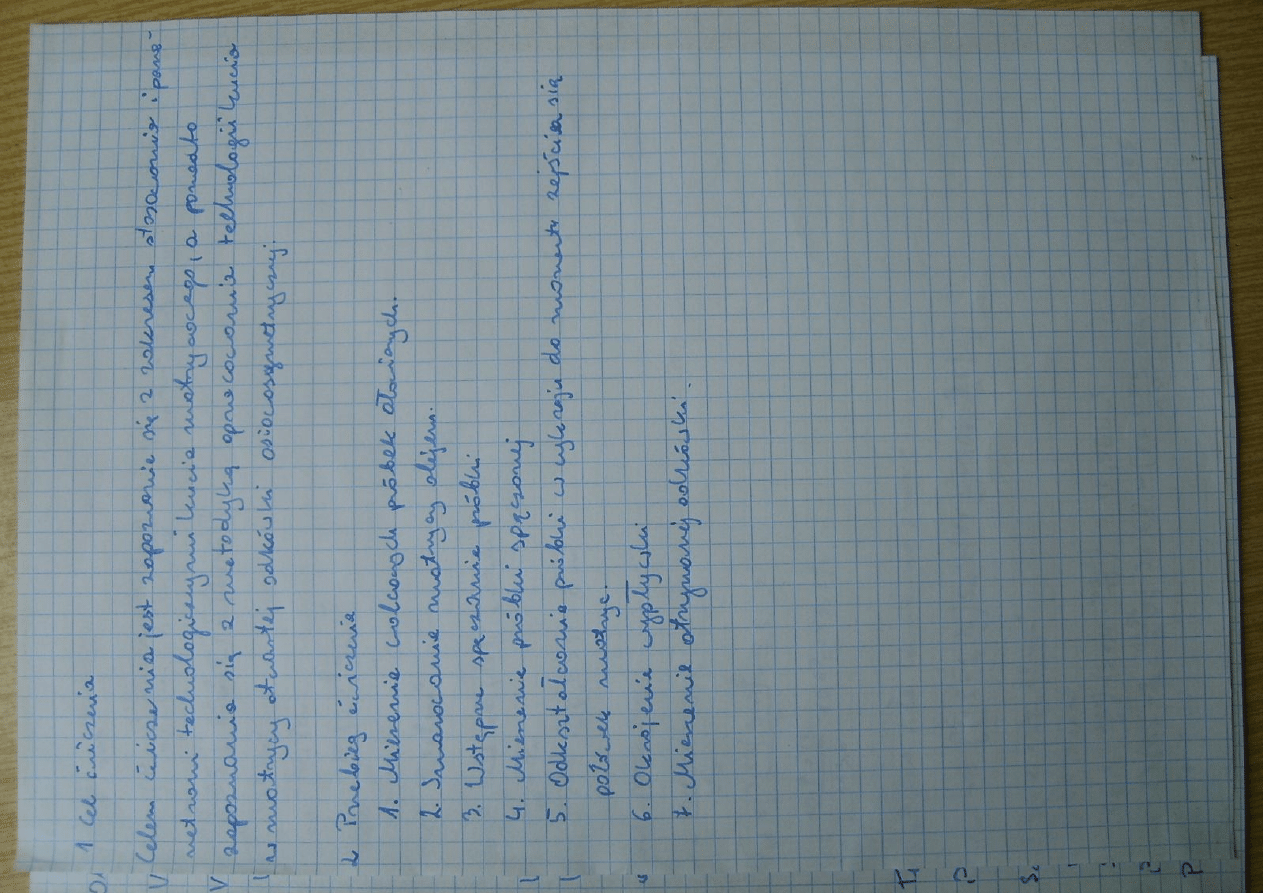 1 Cel ćwiczenia
Celem ćwiczenia jest zapoznanie się z zakresem stosowania i para-
metrami technologicznymi kucia matrycowego, a ponadto
zapoznanie się z metodyką opracowania technologii kucia
w matrycy otwartej odkówki osiowosymetrycznej.
2 Przebieg ćwiczenia
1. Mierzenie walcowych próbek ołowianych.
2. Smarowanie matrycy olejem.
3. Wstępne spęczanie próbki
4. Mierzenie próbki spęczonej
5. Odkształcanie próbki w wykroju do momentu zejścia się
połówek matryc.
6. Okrojenie wypływki
7. Mierzenie otrzymanej odkówki.